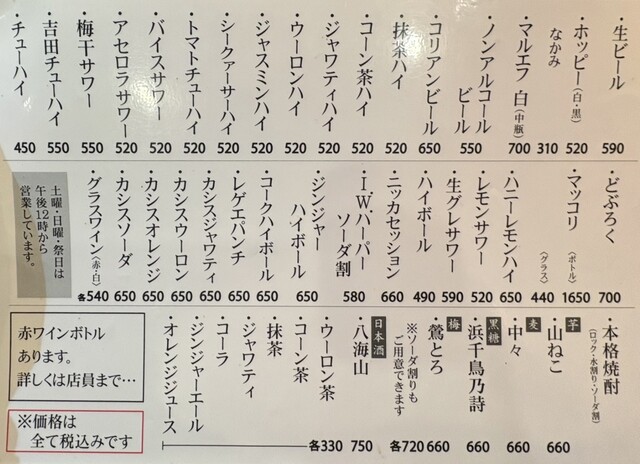 ・生ビール 590
・ホッピー（白・黒） 520
なかみ 310
・マルエフ 白（中瓶） 700
・ノンアルコールビール 550
・コリアンビール 650
・抹茶ハイ 520
・コーン茶ハイ 520
・ジャワティハイ 520
・ウーロンハイ 520
・ジャスミンハイ 520
・シークァーサーハイ 520
・トマトチューハイ 520
・バイスサワー 520
・アセロラサワー 520
・梅干サワー 550
・吉田チューハイ 550
・チューハイ 450
・どぶろく 700
・マッコリ
〈ボトル〉 1650
〈グラス〉 440
・ハニーレモンハイ 650
・レモンサワー 520
・生グレサワー 590
・ハイボール 490
・ニッカセッション 660
・I.W.ハーパーソーダ割 580
・ジンジャーハイボール 650
・コークハイボール 650
・レゲエパンチ 650
・カシスジャワティ 650
・カシスウーロン 650
・カシスオレンジ 650
・カシスソーダ 650
・グラスワイン（赤・白） 各540
土曜・日曜・祭日は
午後12時から
営業しています。
・本格焼酎
（ロック・水割り・ソーダ割）
芋 ・山ねこ 660
麦 ・中々 660
黒糖 ・浜千鳥乃詩 660
梅 ・鶯とろ 660
※ソーダ割りも
ご用意できます 各720
日本酒 ・八海山 750
・ウーロン茶
・コーン茶
・抹茶
・ジャワティ
・コーラ
・ジンジャーエール
・オレンジジュース
各330
赤ワインボトル
あります。
詳しくは店員まで…
※価格は
全て税込みです